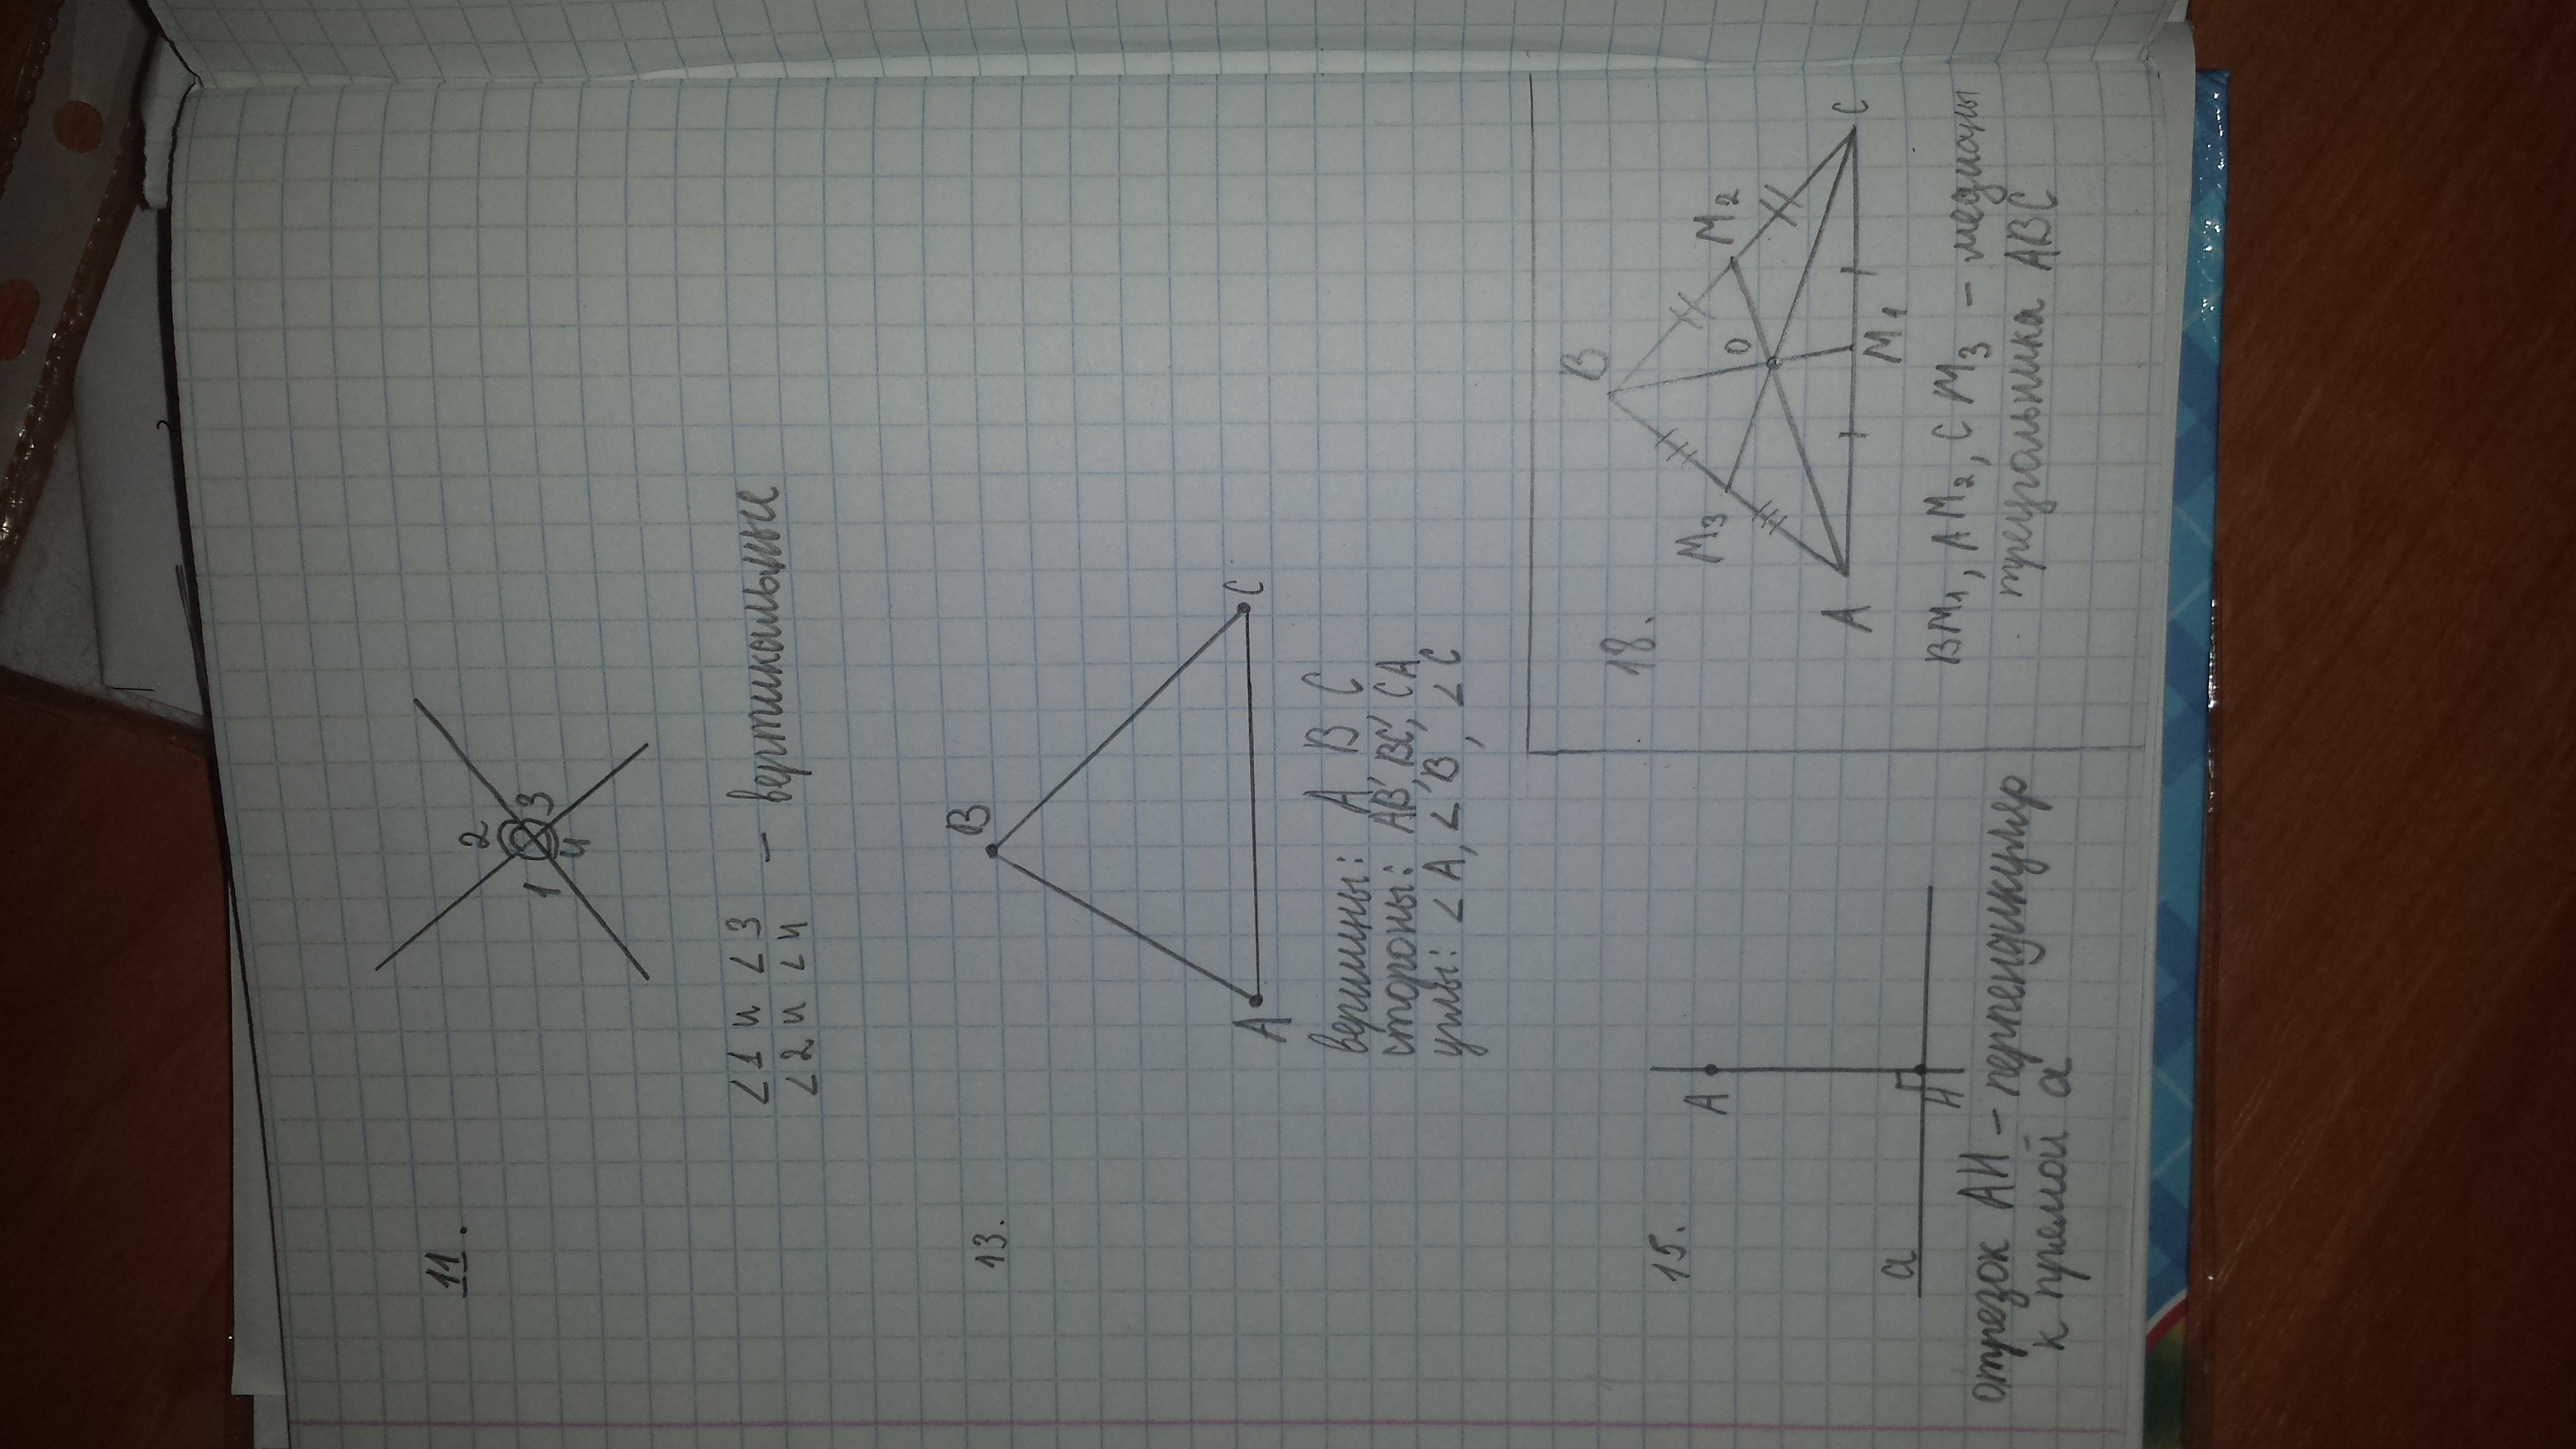 11.
2
1 3
4
∠1 и ∠3
∠2 и ∠4 — вертикальные
13.
B
A C
вершины: A, B, C
стороны: AB, BC, CA
углы: ∠A, ∠B, ∠C
15.
A
a H
отрезок AH – перпендикуляр
к прямой a
18.
B
M3 O M2
A M1 C
BM1, AM2, CM3 – медианы
треугольника ABC